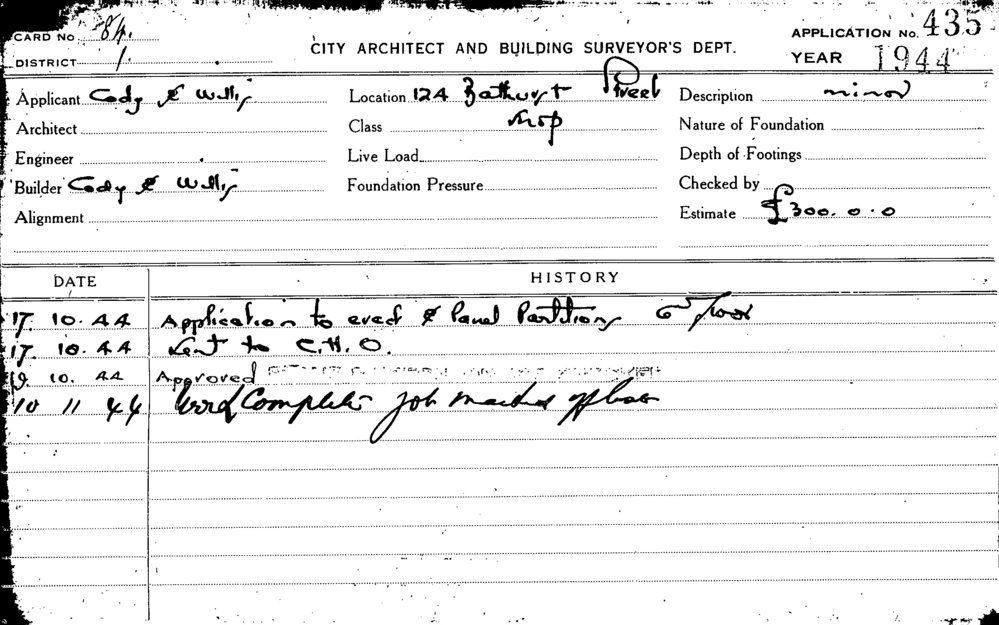 CARD NO 84.
APPLICATION NO. 435
DISTRICT 1.
CITY ARCHITECT AND BUILDING SURVEYOR'S DEPT.
YEAR 1944
Applicant Cody & Willis
Location 124 Bathurst Street
Description minor
Architect
Class Shop
Nature of Foundation
Engineer
Live Load
Depth of Footings
Builder Cody & Willis
Foundation Pressure
Checked by
Alignment
Estimate £300.0.0
DATE HISTORY
17. 10. 44 Application to erect & Panel Partitions floor
17. 10. 44 Sent to C.H.O.
19. 10. 44 Approved
10 11 44 Work Complete job marked off